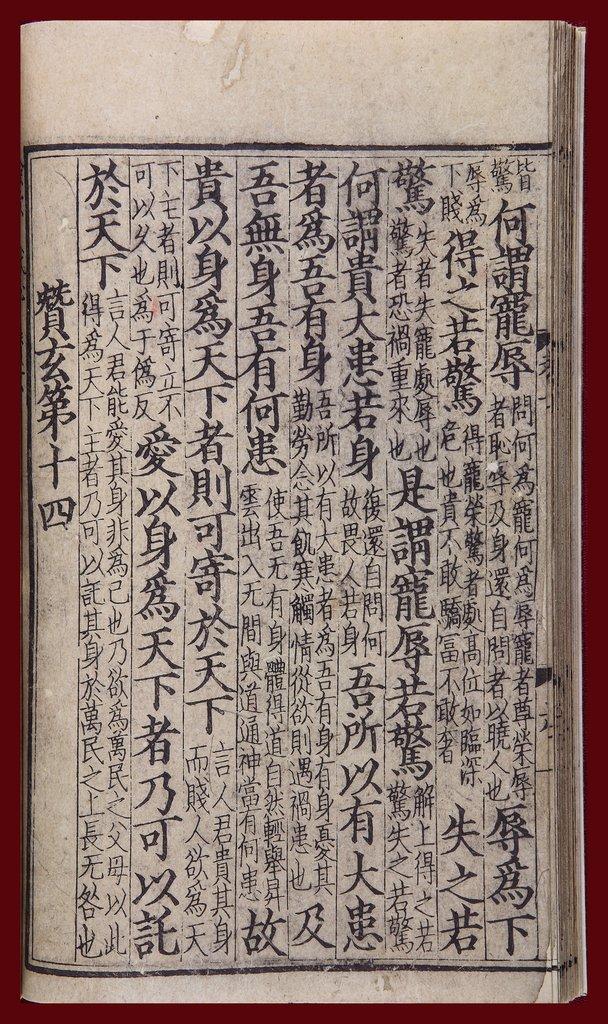 皆驚何謂寵辱問何爲寵何爲辱寵者尊榮辱者恥辱及身還自問者以曉人也辱爲下
辱爲下賤得之若驚得寵榮驚者處高位如臨深危也貴不敢驕富不敢奢失之若
驚失者失寵處辱也驚者恐禍重來也是謂寵辱若驚解上得之若驚失之若驚
何謂貴大患若身復還自問何故畏人若身吾所以有大患
者爲吾有身吾所以有大患者爲吾有身有身憂其勤勞念其飢寒觸情從欲則遇禍患也及
吾無身吾有何患使吾无有身體得道自然輕舉昇雲出入无間與道通神當有何患故
貴以身爲天下者則可寄於天下言人君貴其身而賤人欲爲天
下主者則可寄立不可以久也爲于僞反愛以身爲天下者乃可以託
於天下言人君能愛其身非爲己也乃欲爲萬民之父母以此得爲天下主者乃可以託其身於萬民之上長无咎也
贊玄第十四